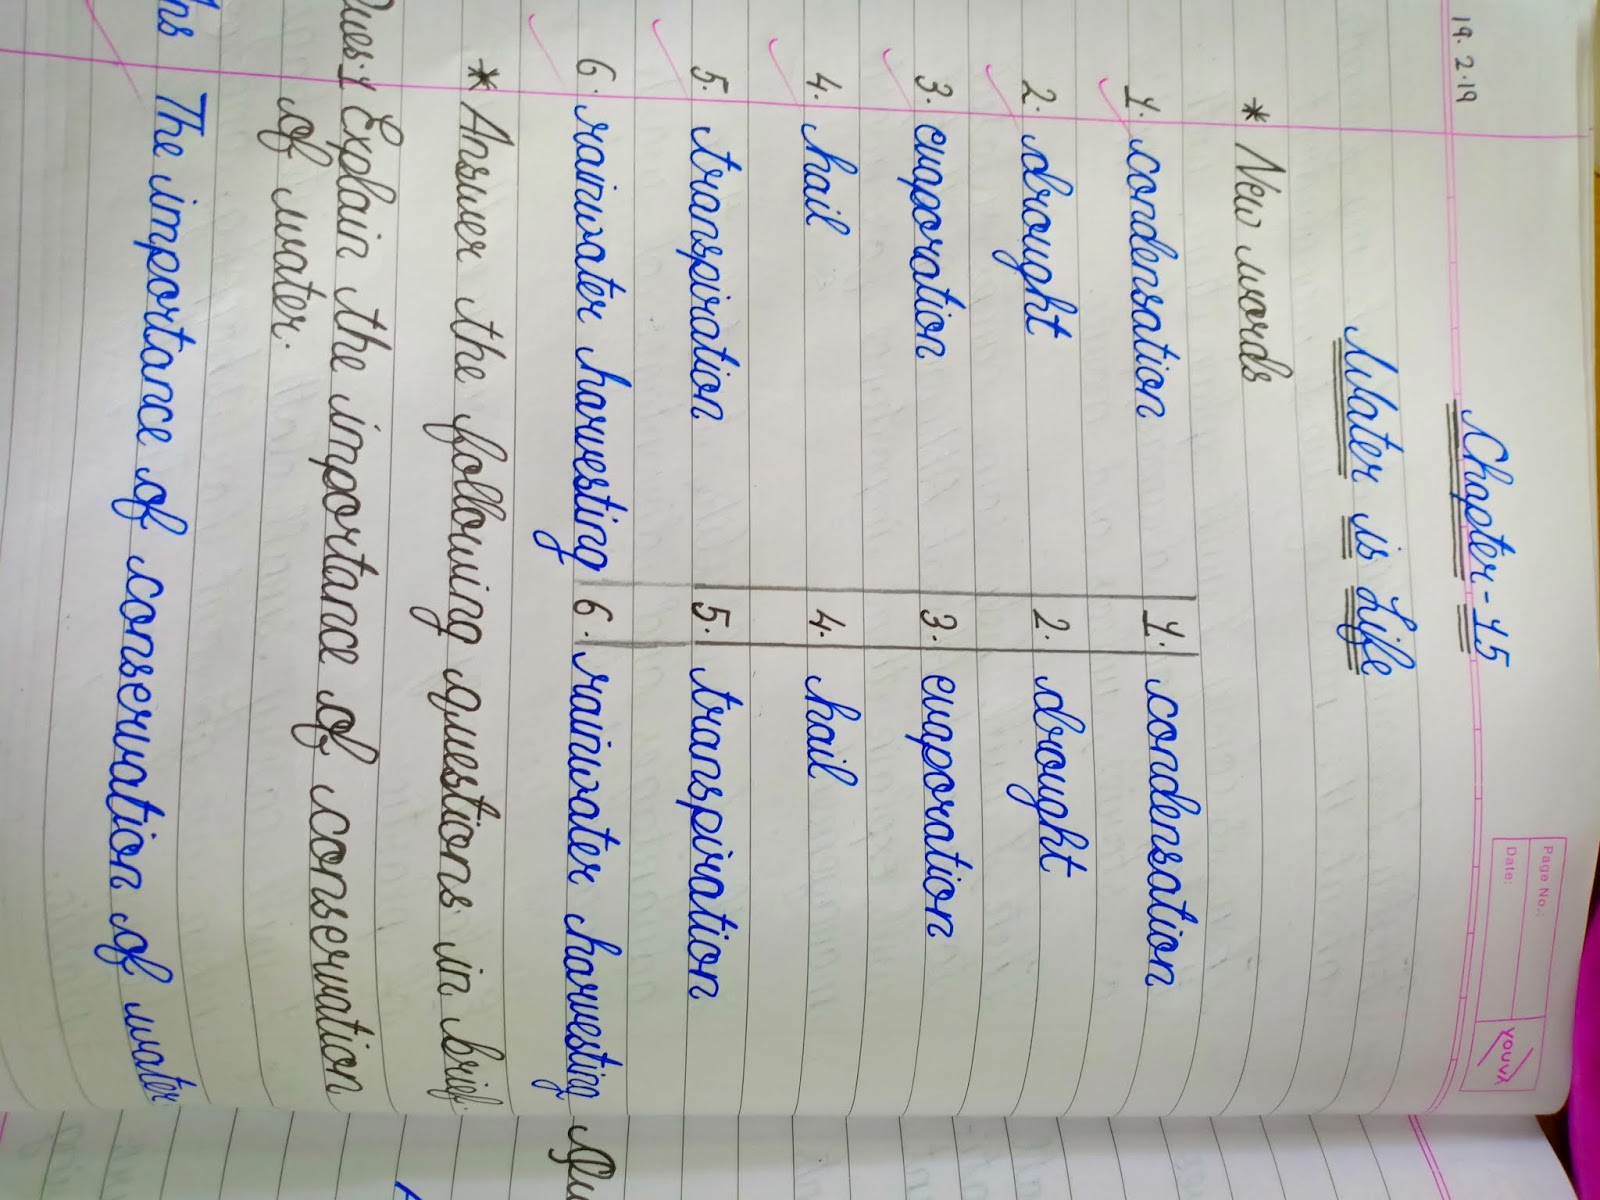 19.2.19
Page No.:
Date:
YOUVA
Chapter-15
Water is Life
* New words
1. condensation 1. condensation
2. drought 2. drought
3. evaporation 3. evaporation
4. hail 4. hail
5. transpiration 5. transpiration
6. rainwater harvesting 6. rainwater harvesting
* Answer the following questions in brief.
Ques.1 Explain the importance of conservation
of water.
Ans The importance of conservation of water